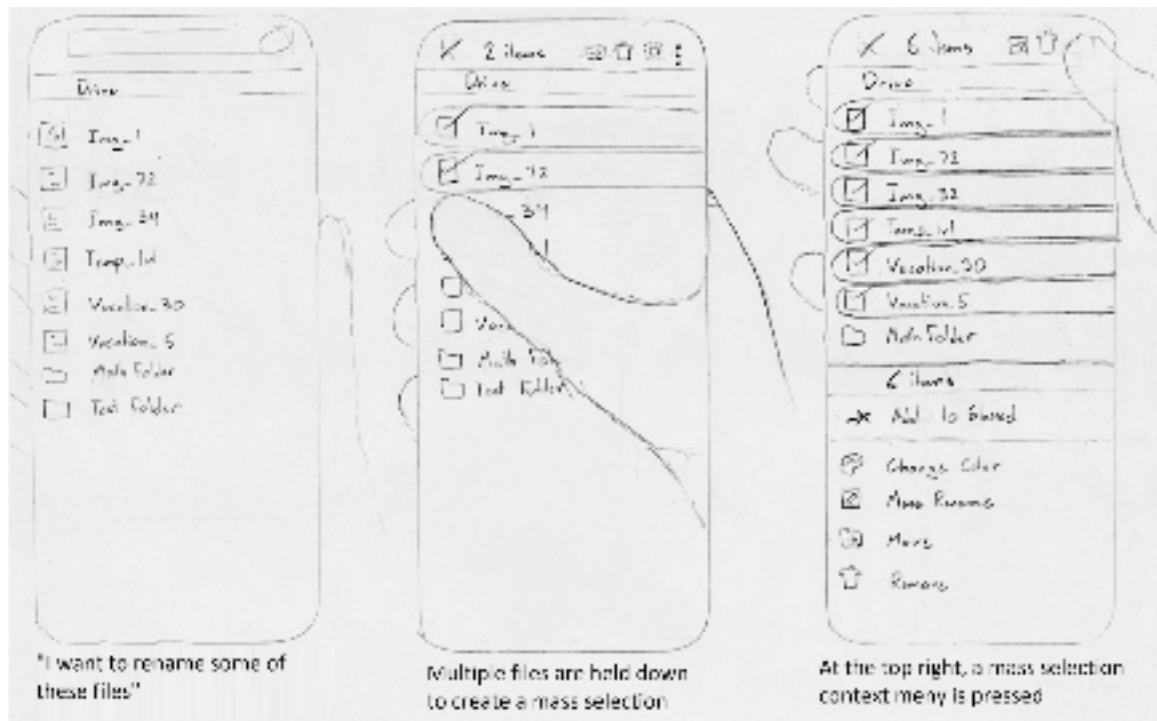 Drive
Img_1
Img_72
Img_34
Temp_lvl
Vacation_30
Vacation_5
Math Folder
Test Folder
"I want to rename some of
these files"
X 2 items
Drive
Img_1
Img_72
_34
Math
Test Folder
Multiple files are held down
to create a mass selection
X 6 items
Drive
Img_1
Img_72
Img_32
Temp_lvl
Vacation_30
Vacation_5
Math Folder
6 items
Add to Shared
Change Color
Mass Rename
Move
Remove
At the top right, a mass selection
context meny is pressed